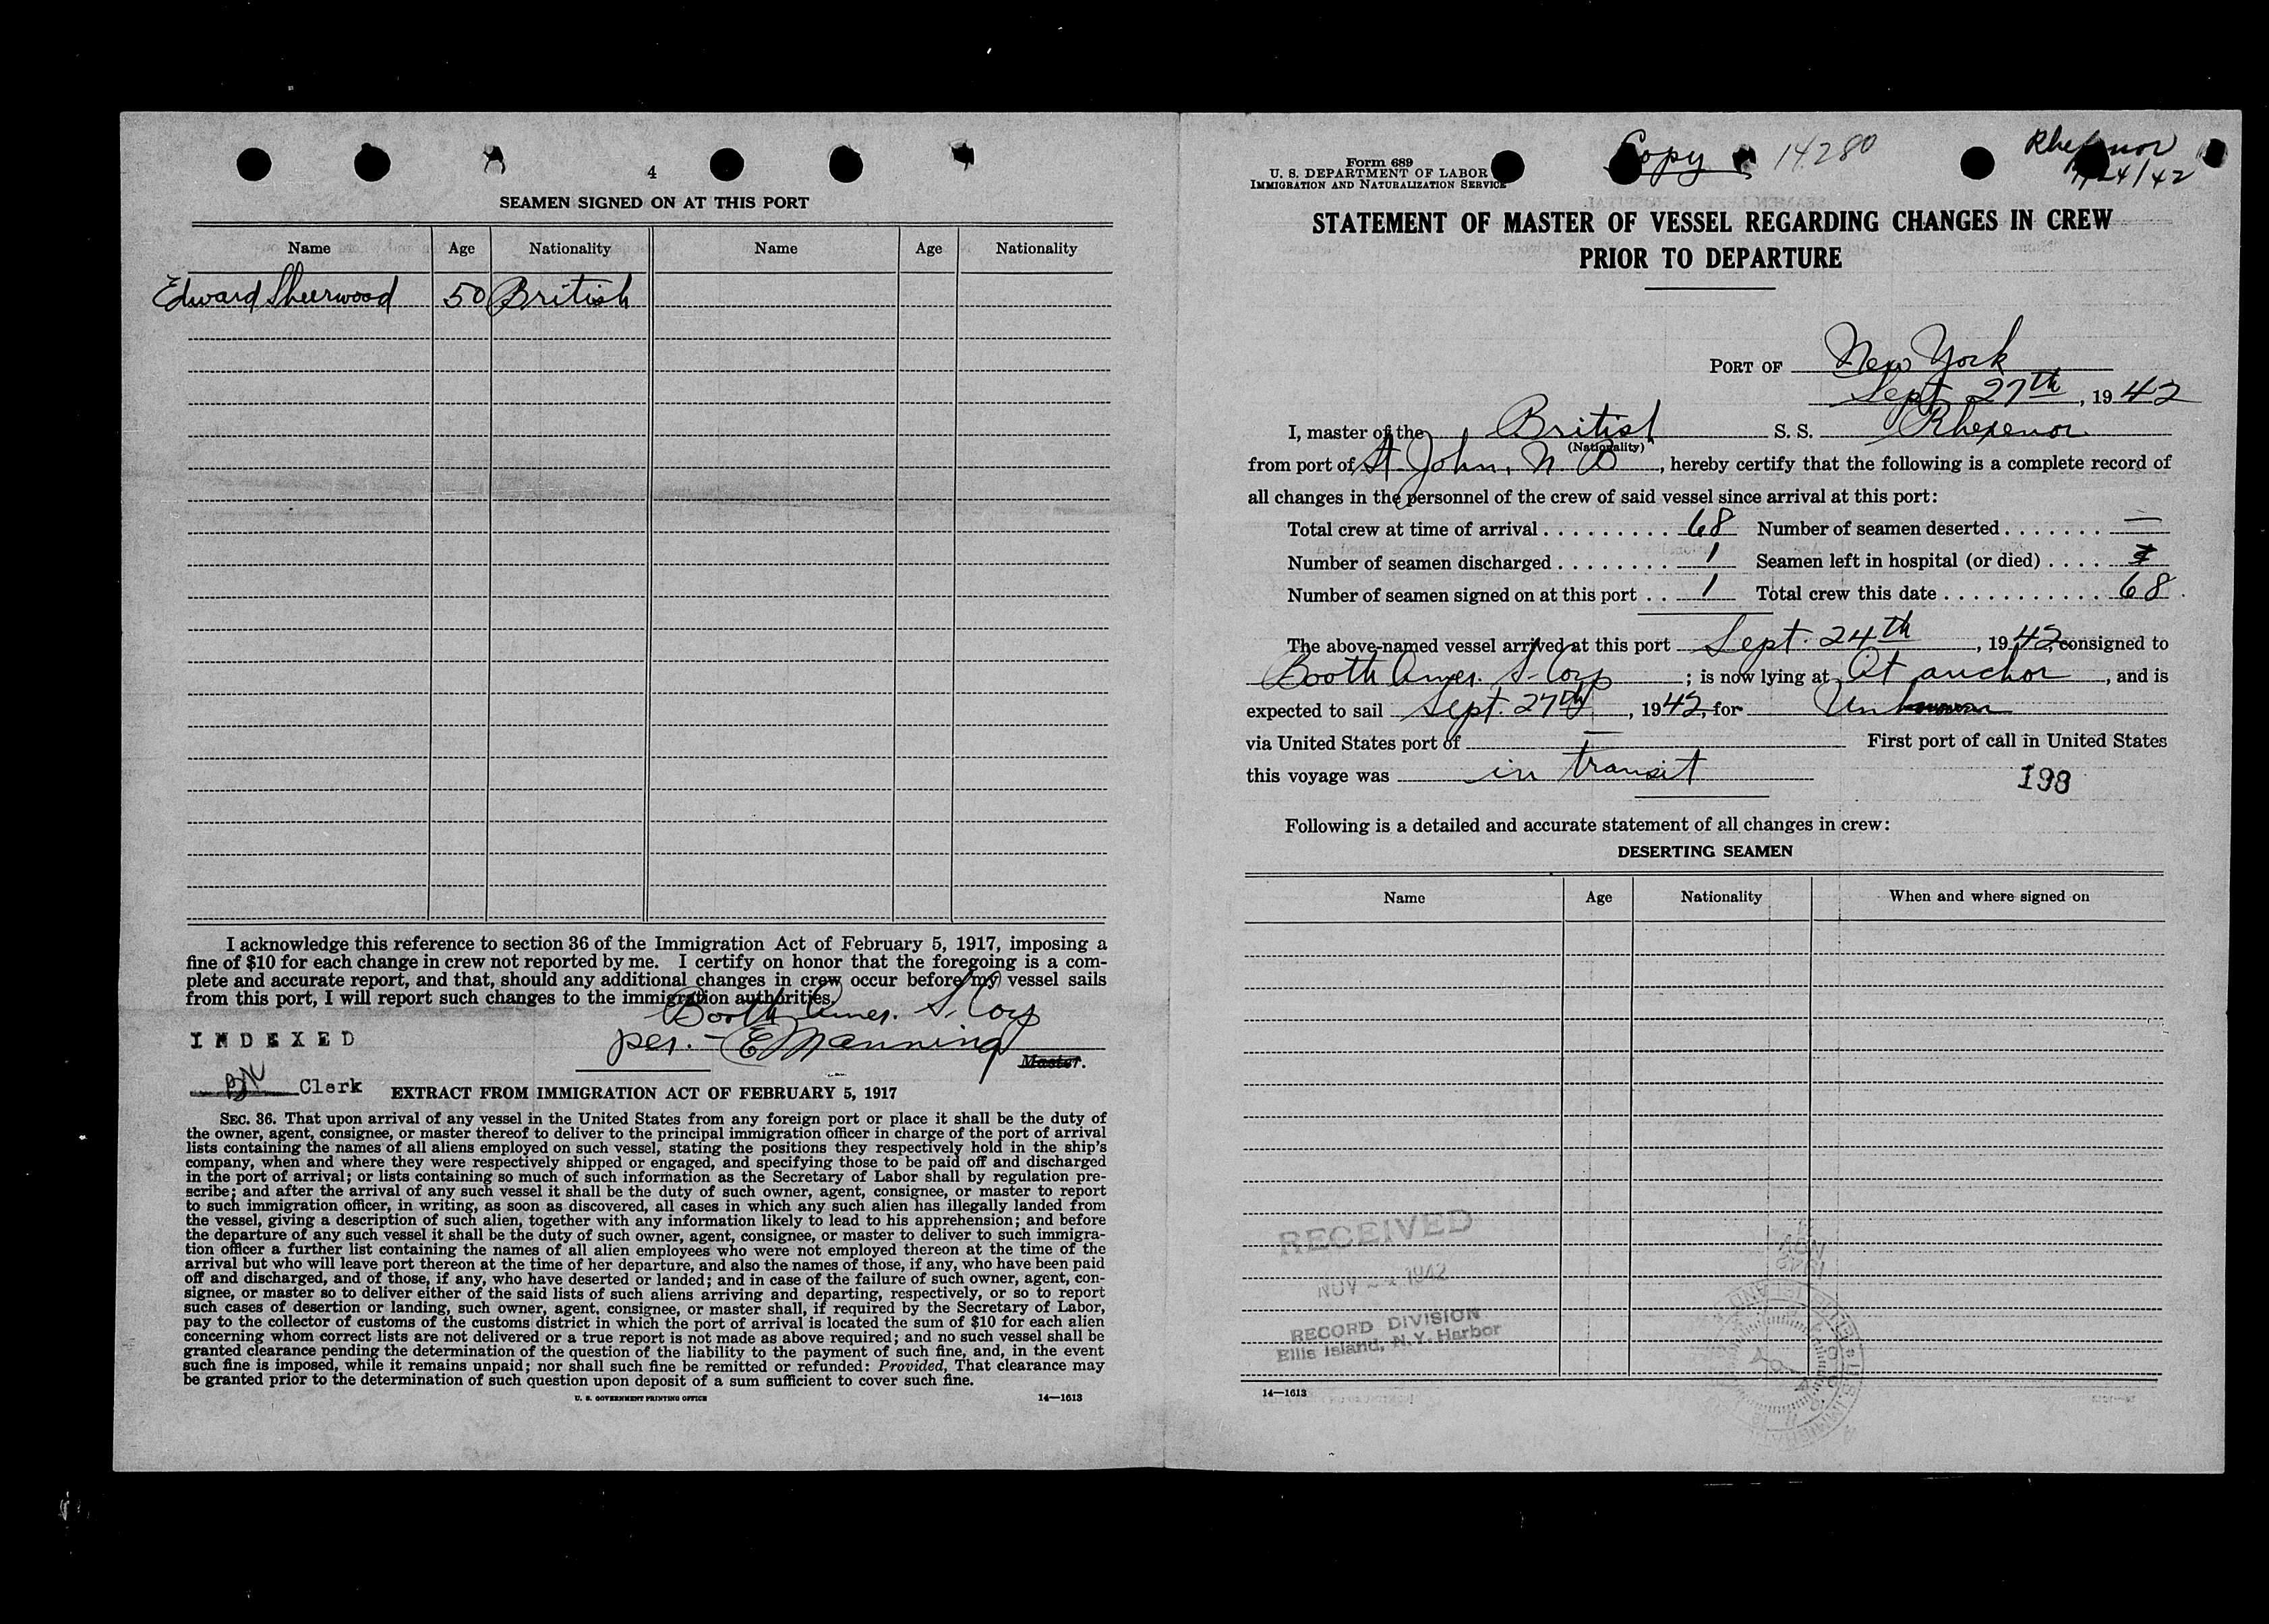 4
SEAMEN SIGNED ON AT THIS PORT
Name Age Nationality Name Age Nationality
Edward Sheerwood 50 British
I acknowledge this reference to section 36 of the Immigration Act of February 5, 1917, imposing a
fine of $10 for each change in crew not reported by me. I certify on honor that the foregoing is a com-
plete and accurate report, and that, should any additional changes in crew occur before my vessel sails
from this port, I will report such changes to the immigration authorities.
Booth Amer. S. Corp
per. - E Manning
Master.
INDEXED
Clerk
EXTRACT FROM IMMIGRATION ACT OF FEBRUARY 5, 1917
SEC. 36. That upon arrival of any vessel in the United States from any foreign port or place it shall be the duty of
the owner, agent, consignee, or master thereof to deliver to the principal immigration officer in charge of the port of arrival
lists containing the names of all aliens employed on such vessel, stating the positions they respectively hold in the ship's
company, when and where they were respectively shipped or engaged, and specifying those to be paid off and discharged
in the port of arrival; or lists containing so much of such information as the Secretary of Labor shall by regulation pre-
scribe; and after the arrival of any such vessel it shall be the duty of such owner, agent, consignee, or master to report
to such immigration officer, in writing, as soon as discovered, all cases in which any such alien has illegally landed from
the vessel, giving a description of such alien, together with any information likely to lead to his apprehension; and before
the departure of any such vessel it shall be the duty of such owner, agent, consignee, or master to deliver to such immigra-
tion officer a further list containing the names of all alien employees who were not employed thereon at the time of the
arrival but who will leave port thereon at the time of her departure, and also the names of those, if any, who have been paid
off and discharged, and of those, if any, who have deserted or landed; and in case of the failure of such owner, agent, con-
signee, or master so to deliver either of the said lists of such aliens arriving and departing, respectively, or so to report
such cases of desertion or landing, such owner, agent, consignee, or master shall, if required by the Secretary of Labor,
pay to the collector of customs of the customs district in which the port of arrival is located the sum of $10 for each alien
concerning whom correct lists are not delivered or a true report is not made as above required; and no such vessel shall be
granted clearance pending the determination of the question of the liability to the payment of such fine, and, in the event
such fine is imposed, while it remains unpaid; nor shall such fine be remitted or refunded: Provided, That clearance may
be granted prior to the determination of such question upon deposit of a sum sufficient to cover such fine.
U. S. GOVERNMENT PRINTING OFFICE 14—1613
Form 689
U. S. DEPARTMENT OF LABOR
IMMIGRATION AND NATURALIZATION SERVICE
Copy 14280
Rhexenor
/24/42
STATEMENT OF MASTER OF VESSEL REGARDING CHANGES IN CREW
PRIOR TO DEPARTURE
PORT OF New York
Sept 27th, 1942
I, master of the British S. S. Rhexenor
(Nationality)
from port of St John, N. B, hereby certify that the following is a complete record of
all changes in the personnel of the crew of said vessel since arrival at this port:
Total crew at time of arrival . . . . . . . . . 68 Number of seamen deserted . . . . . . . —
Number of seamen discharged . . . . . . . . 1 Seamen left in hospital (or died) . . . .
Number of seamen signed on at this port . . 1 Total crew this date . . . . . . . . . . . 68
The above-named vessel arrived at this port Sept. 24th, 1942, consigned to
Booth Amer. S. Corp; is now lying at At anchor, and is
expected to sail Sept. 27th, 1942, for Unknown
via United States port of — First port of call in United States
this voyage was in transit
198
Following is a detailed and accurate statement of all changes in crew:
DESERTING SEAMEN
Name Age Nationality When and where signed on
RECEIVED
NOV 1942
RECORD DIVISION
Ellis Island, N.Y. Harbor
14—1613